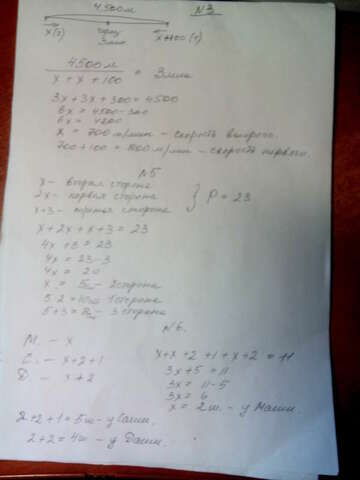 4500м
N3
x(2)
через
3 мин
x+100 (1)
4500м / x + x + 100 = 3 мин
3x + 3x + 300 = 4500
6x = 4500 - 300
6x = 4200
x = 700 м/мин - скорость второго.
700 + 100 = 800 м/мин - скорость первого.
N5
x - вторая сторона
2x - первая сторона
x+3 - третья сторона
} P = 23
x + 2x + x + 3 = 23
4x + 3 = 23
4x = 23 - 3
4x = 20
x = 5 - 2 сторона
5·2 = 10 - 1 сторона
5+3 = 8 - 3 сторона
N6.
М. - x
С. - x+2+1
Д - x+2
x + x + 2 + 1 + x + 2 = 11
3x + 5 = 11
3x = 11 - 5
3x = 6
x = 2 ш - у Маши.
2+2+1 = 5 ш - у Саши.
2+2 = 4 ш - у Даши.